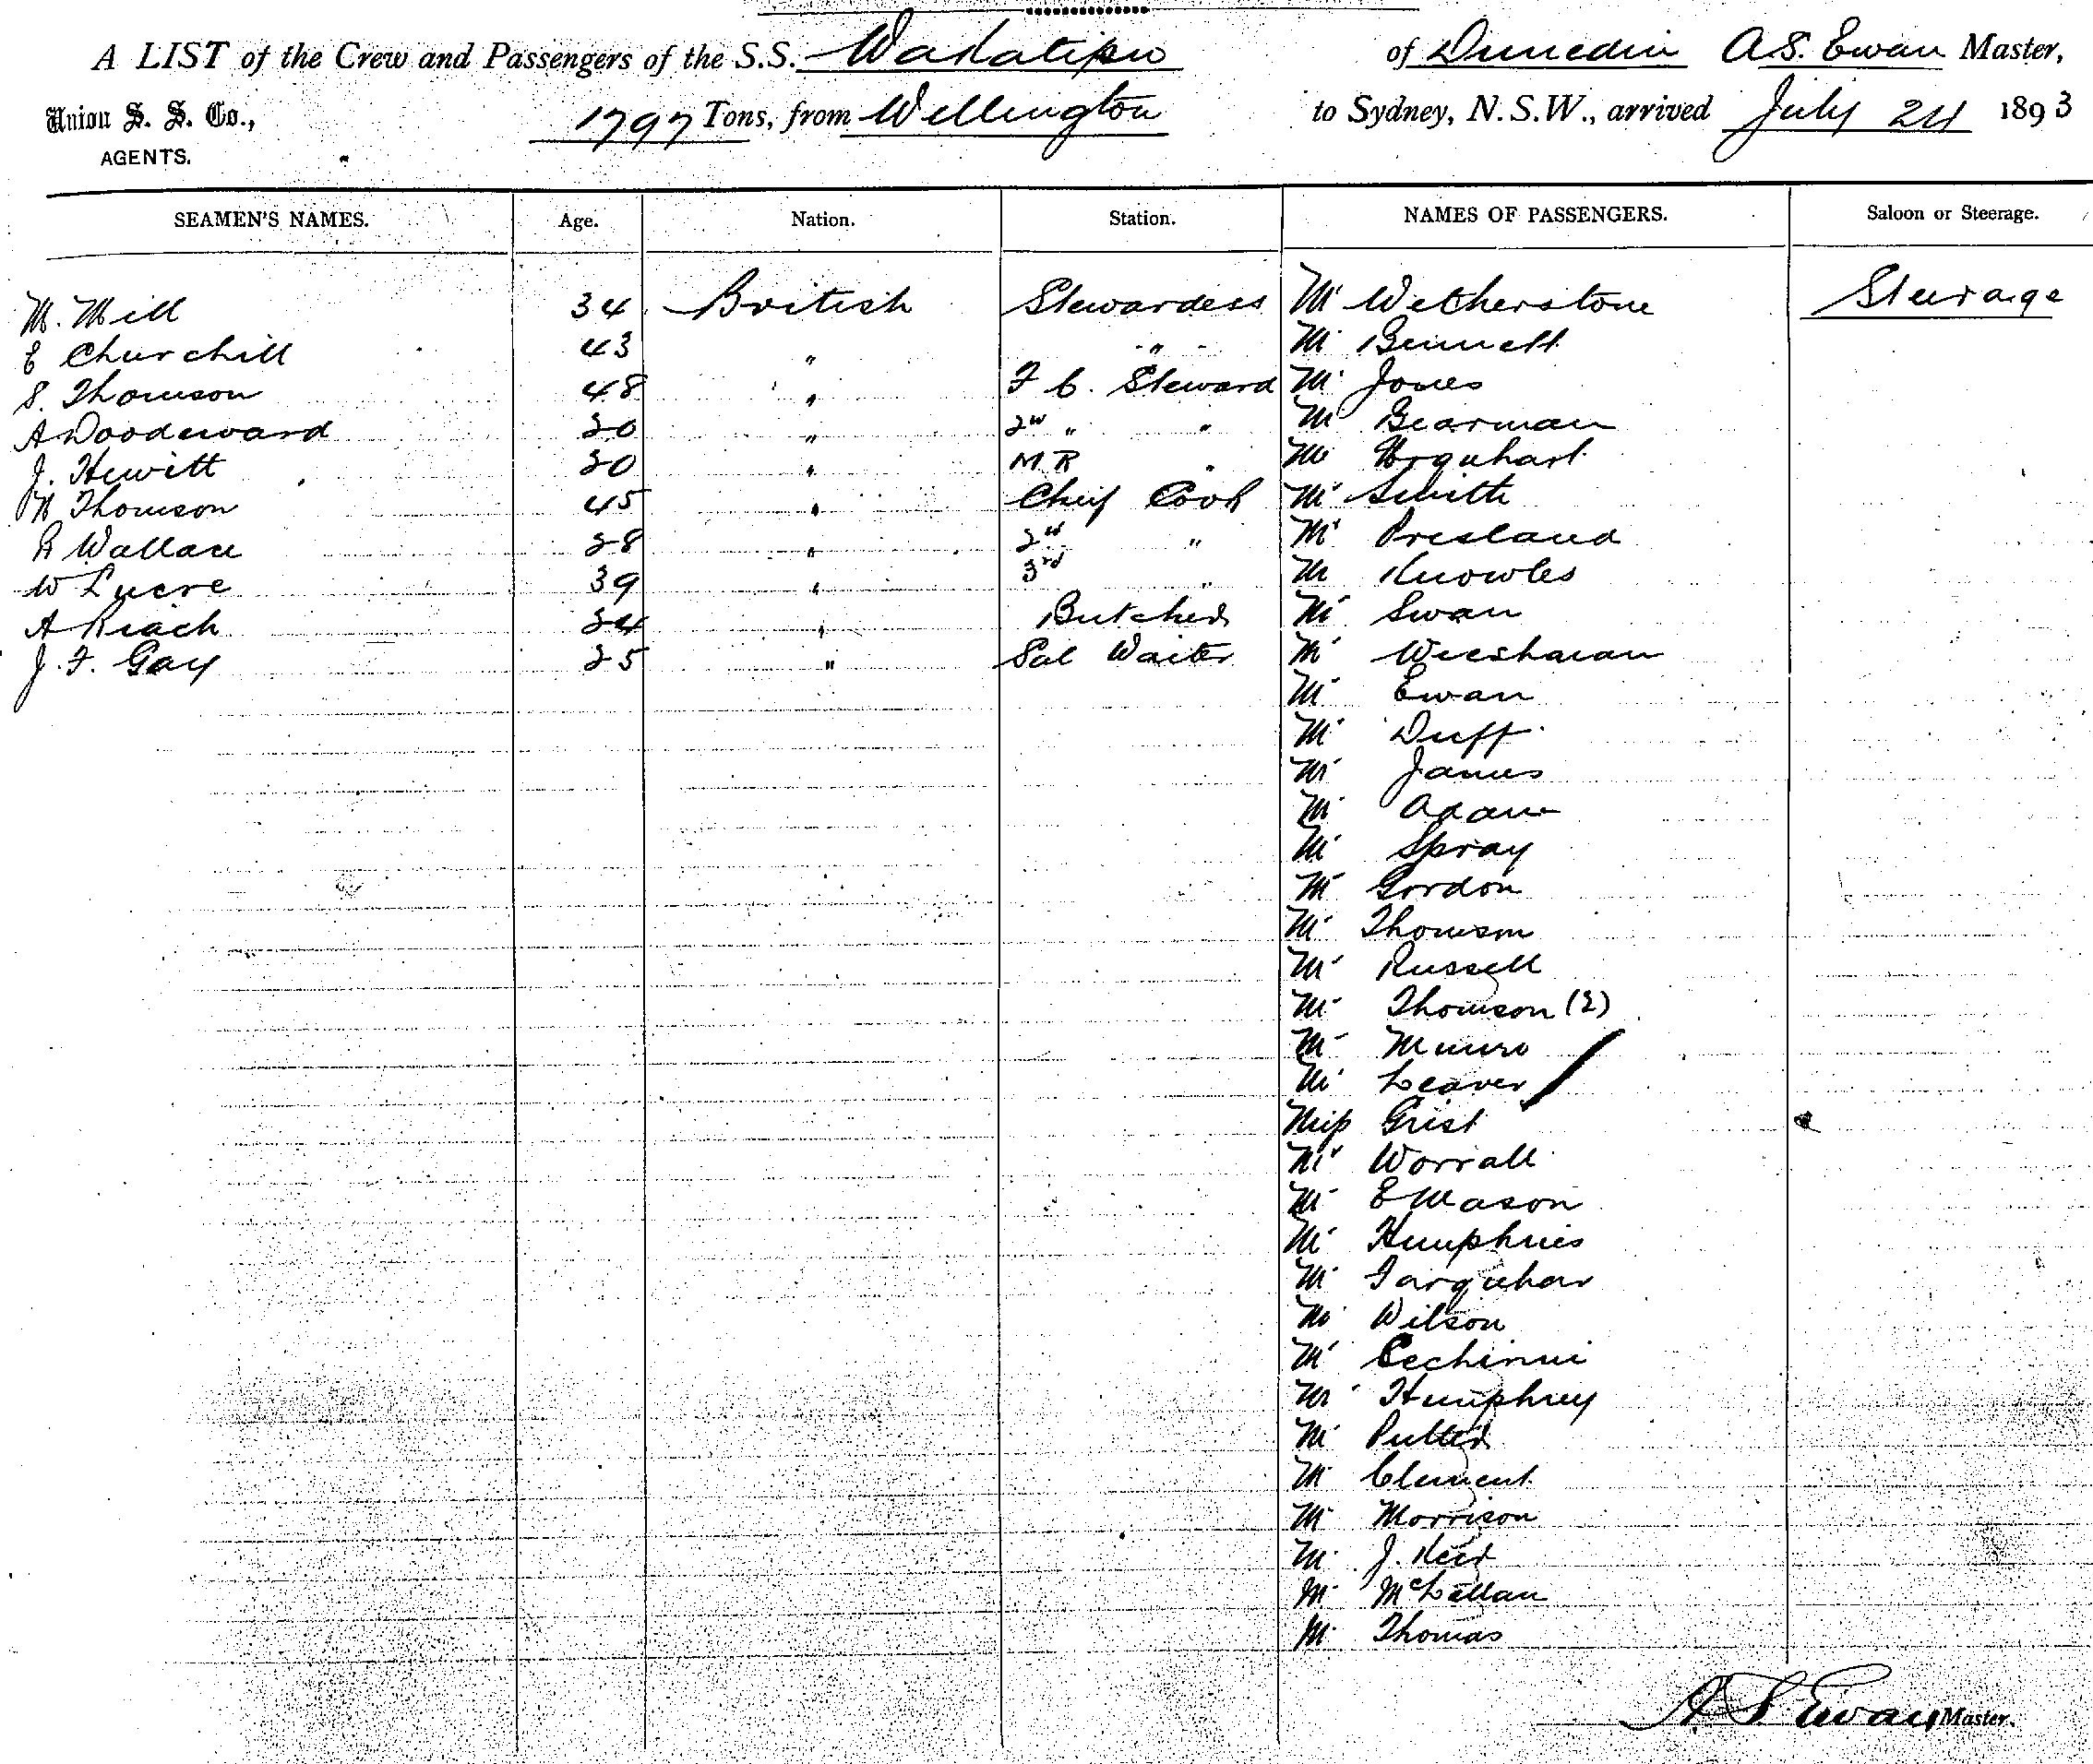 A LIST of the Crew and Passengers of the S.S. Wakatipu of Dunedin A.S. Ewan Master,
Union S. S. Co., 1797 Tons, from Wellington to Sydney, N.S.W., arrived July 24 1893
AGENTS.
SEAMEN'S NAMES. Age. Nation. Station. NAMES OF PASSENGERS. Saloon or Steerage.
M. Mill 34 British Stewardess Mr Wetherstone Steerage
E Churchill 43 " " Mr Bennett
S. Thomson 48 " F C. Steward Mr Jones
A Woodward 20 " 2nd " " Mr Bearman
J. Hewitt 20 " M R " Mr Urquhart
W Thomson 45 " Chief Cook Mr Smith
R Wallace 28 " 2nd " Mr Presland
W Lucre 39 " 3rd " Mr Knowles
A Riach 24 " Butcher Mr Swan
J. F. Gay 25 " Sal Waiter Mr
Mr Ewan
Mr Duff
Mr James
Mr Adam
Mr Spray
Mr Gordon
Mr Thomson
Mr Russell
Mr Thomson (2)
Mr Munro
Mr Leaver
Miss Grist
Mr Worrall
Mr E Mason
Mr Humphries
Mr Farquhar
Mr Wilson
Mr Cechinni
Mr Humphrey
Mr Putter
Mr Clement
Mr Morrison
Mr J. Reid
Mr McLellan
Mr Thomas
A. S. Ewan Master.